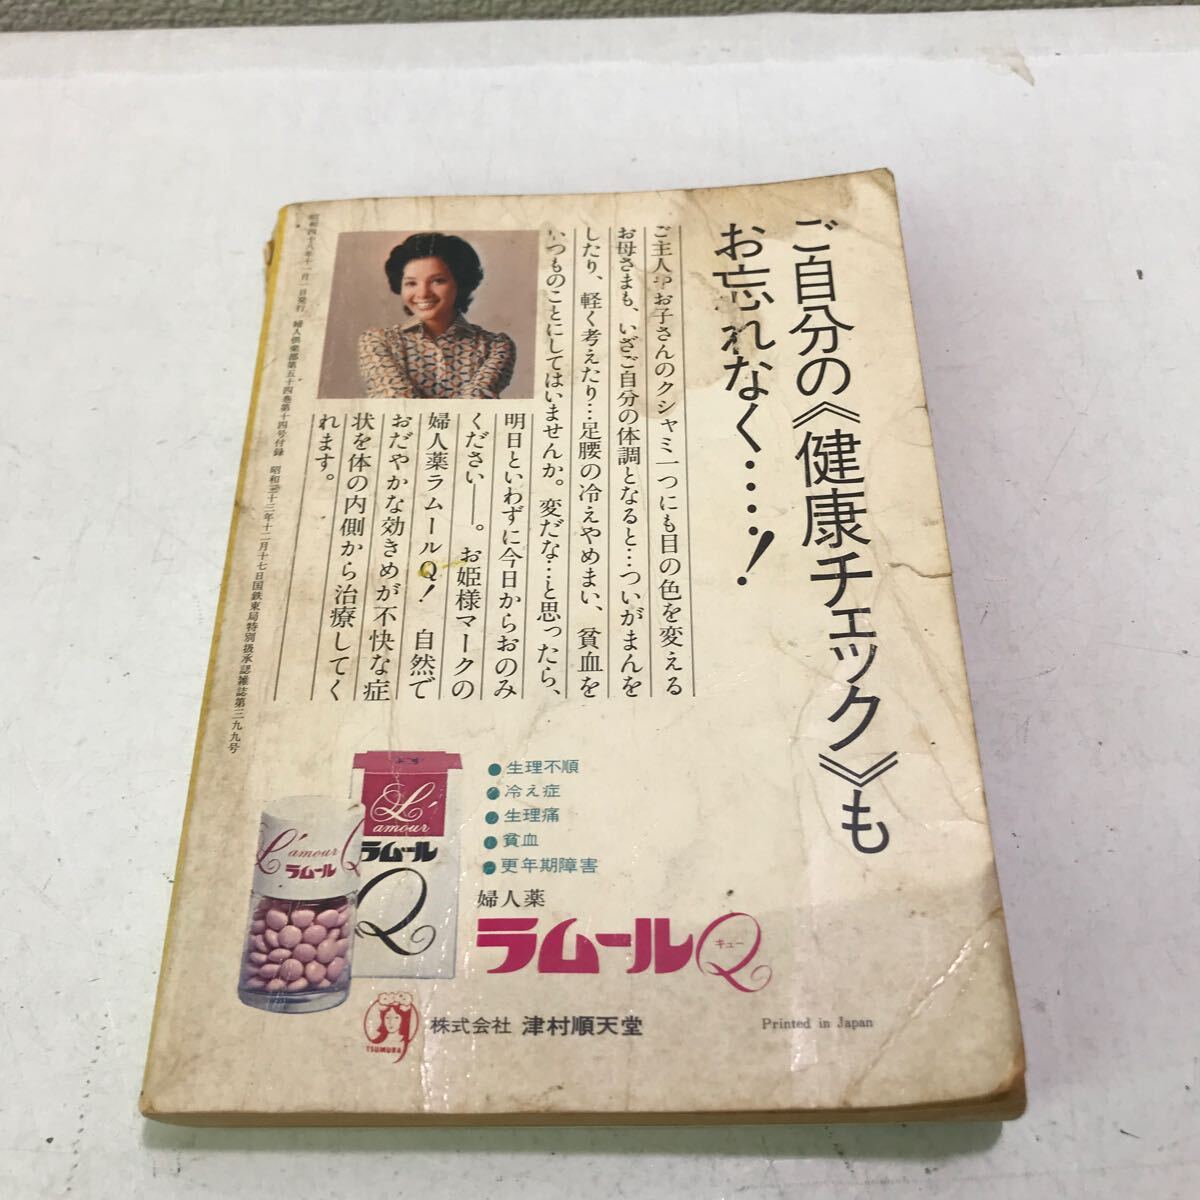 ご自分の《健康チェック》も
お忘れなく……!
ご主人やお子さんのクシャミ一つにも目の色を変える
お母さまも、いざご自分の体調となると…ついがまんを
したり、軽く考えたり…足腰の冷えやめまい、貧血を
いつものことにしてはいませんか。変だな…と思ったら、
明日といわずに今日からおのみ
ください――。お姫様マークの
婦人薬ラムールQ! 自然で
おだやかな効きめが不快な症
状を体の内側から治療してく
れます。
昭和四十八年十一月一日発行 婦人倶楽部第五十四巻第十四号付録 昭和二十三年十二月十七日国鉄東局特別扱承認雑誌第三九九号
●生理不順
●冷え症
●生理痛
●貧血
●更年期障害
婦人薬
ラムールQ
キュー
L'amour
ラムール
Q
L'amour Q
ラムール
TSUMURA
株式会社 津村順天堂
Printed in Japan